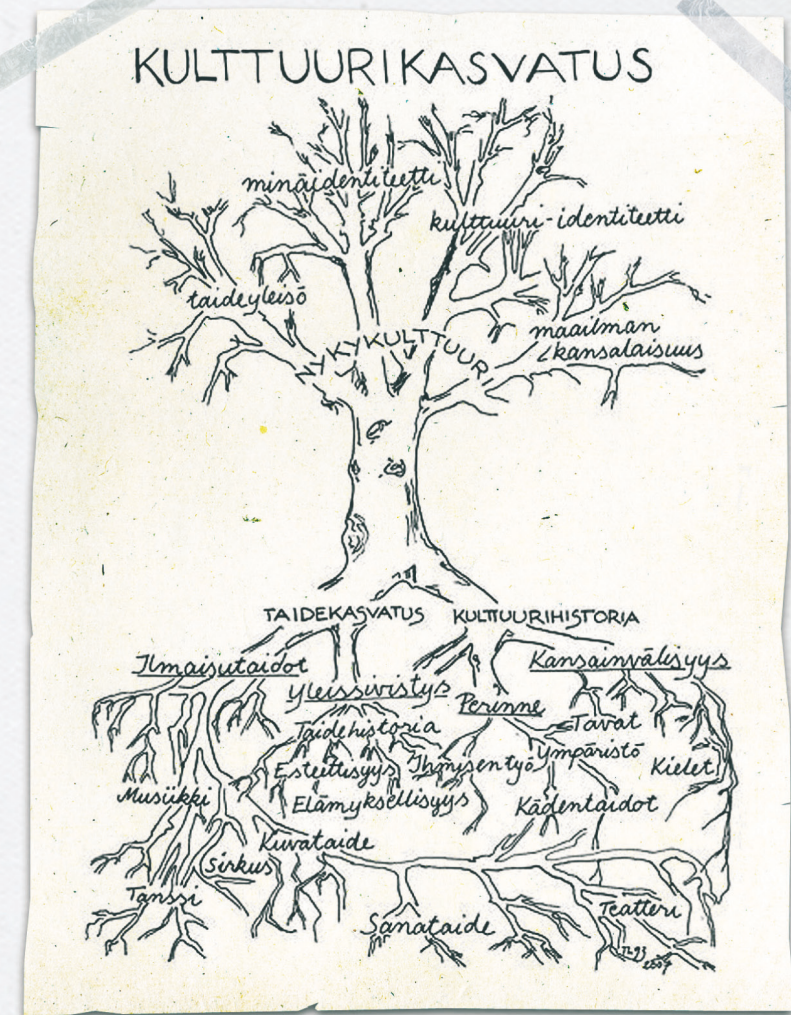 KULTTUURIKASVATUS
minäidentiteetti
kulttuuri-identiteetti
taideyleisö
maailman
kansalaisuus
NYKYKULTTUURI
TAIDEKASVATUS KULTTUURIHISTORIA
Ilmaisutaidot
Kansainvälisyys
Yleissivistys
Perinne
Taidehistoria
Tavat
Ympäristö
Esteettisyys
Ihmisen työ
Kielet
Musiikki
Elämyksellisyys
Kädentaidot
Kuvataide
Sirkus
Tanssi
Sanataide
Teatteri